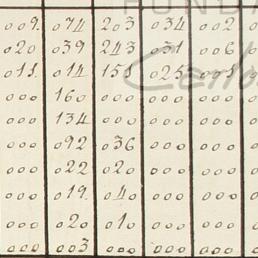 FUNDA
009. 074 203 034 002
020 039 243 031 006
011. 014 151 025 001
000 160 000 000 000
000 134 000 000 000
000 092 036 000 000
000 022 020 000 000
000 019. 040 000 000
000 020 010 000 000
000 003 000 000 000